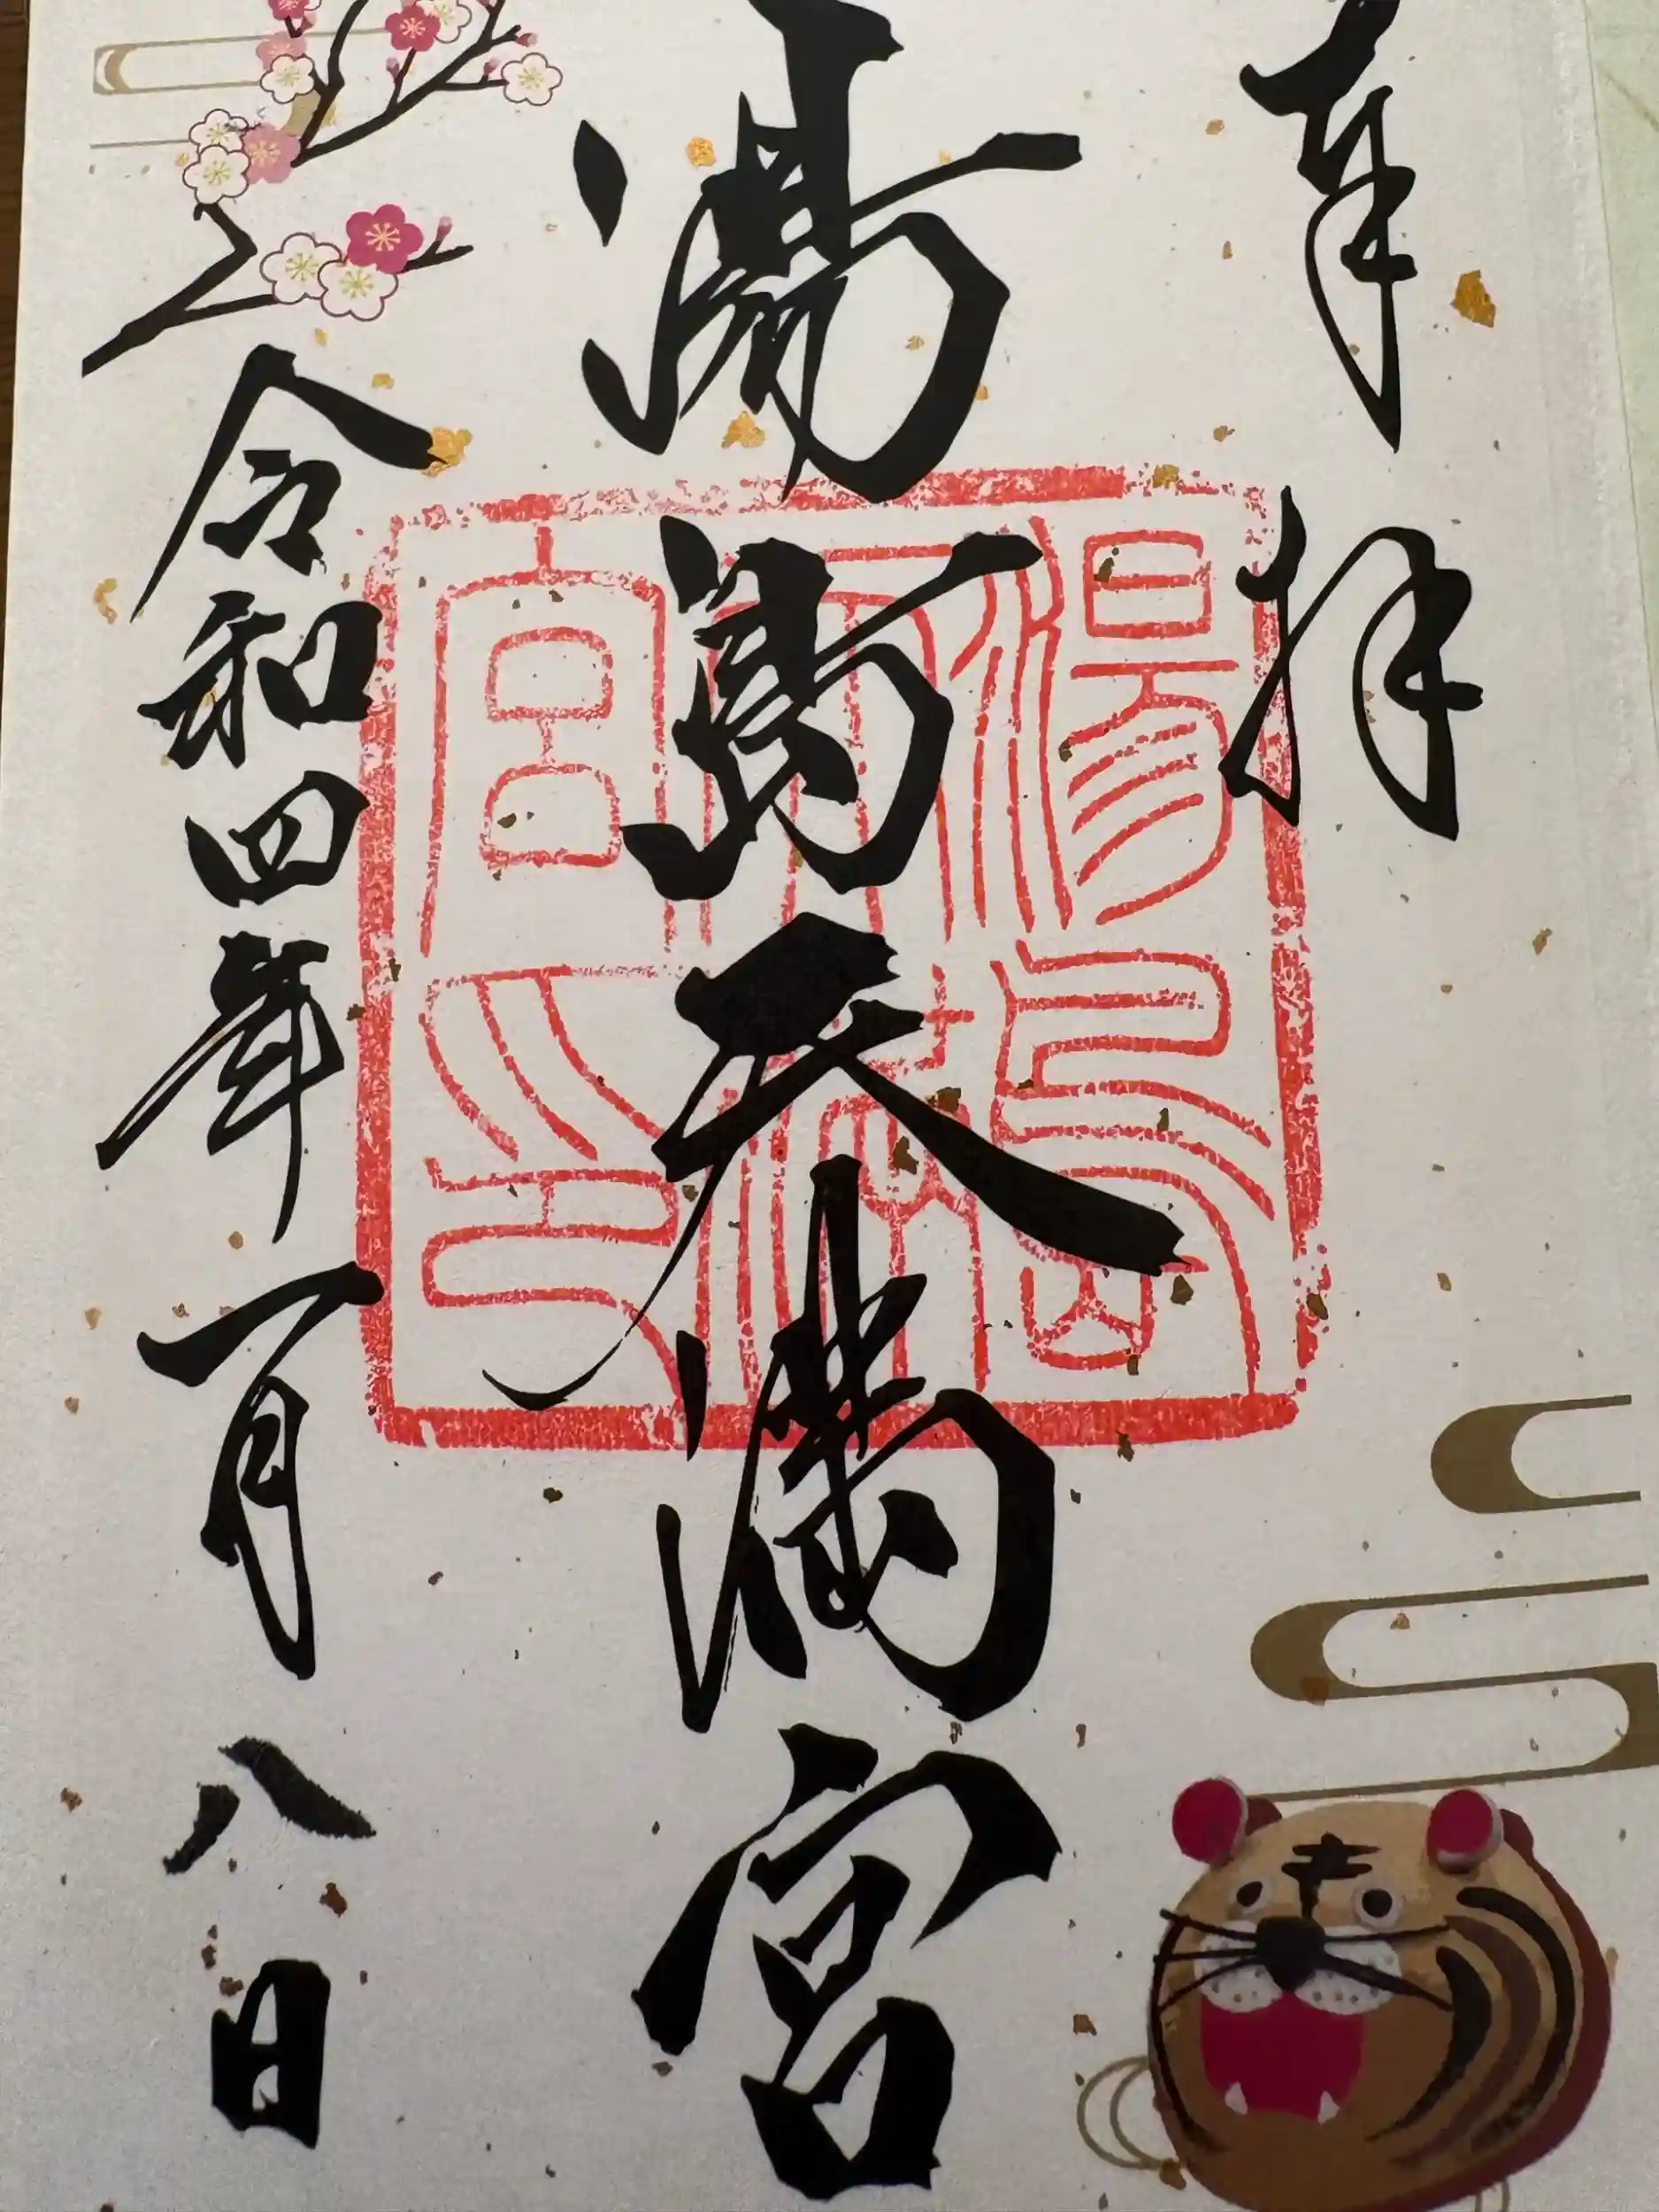 奉拝
湯島天満宮
令和四年一月八日
湯島
天満
宮之印